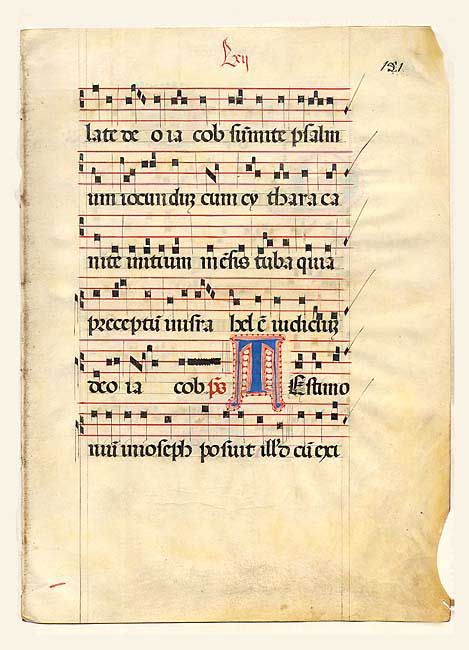 Lxij
131
late de o ia cob sumite psalm
um iocundum cum cy thara ca
nite initium mensis tuba quia
preceptum inisra hel est iudicium
deo ia cob ps TEstimo
nium inioseph posuit illud cum exi